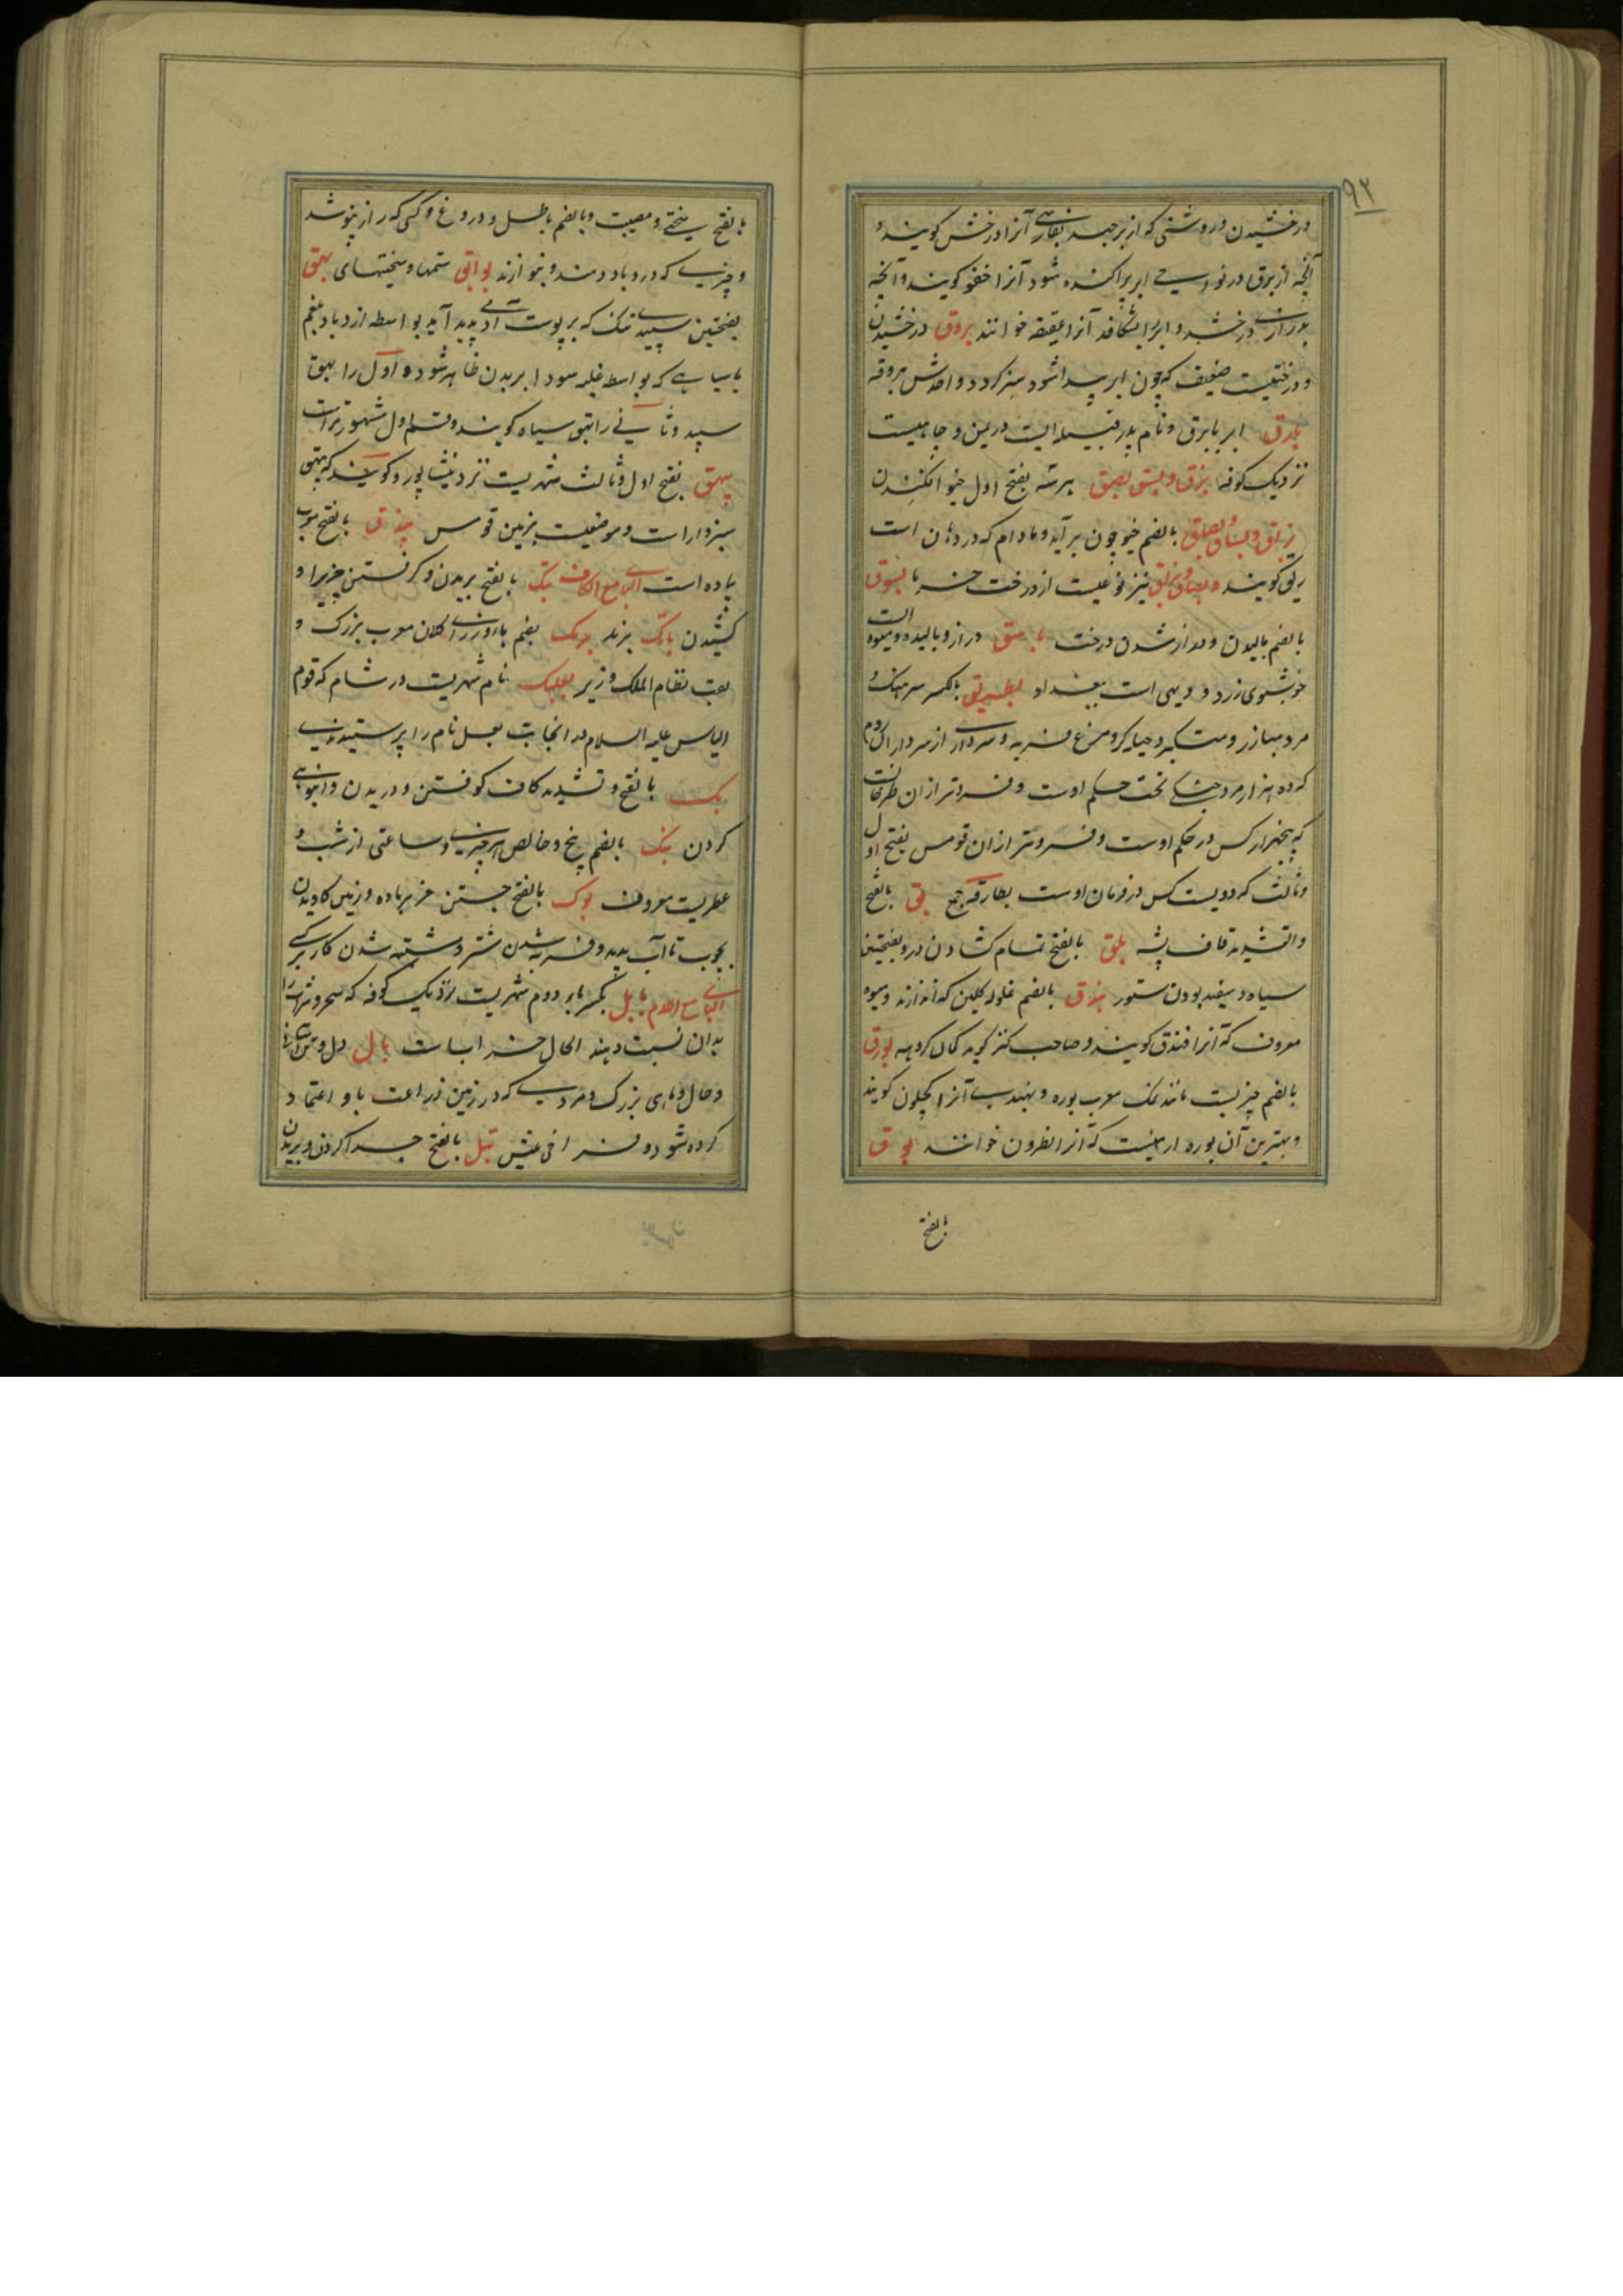 ۹۲
درخشیدن و روشنی که از ابر جهد بفارسی آنرا درخش کویند و
آنچه از برق در نواحی ابر پراکنده شود آنرا خفو کویند و آنچه
بدرازی درخشد و ابر را بشکافد آنرا عقیقه خوانند بروق درخشیدن
و درختیست ضعیف که چون ابر پیدا شود سبز کردد واحدش بروقه
بارق ابر با برق و نام پدر قبیله ایست در یمن و جاهیست
نزدیک کوفه بزق و بسق بصق هرسه بفتح اول خیو افکندن
بزاق و بساق و بصاق بالضم خیو چون برآید و مادام که در دهان است
ریق کویند و بصاق نیز نوعیست از درخت خرما بسوق
بالضم بالیدن و دراز شدن درخت باسق دراز و بالیده و میوه ایست
خوشبوی زرد و دیهی است ببغداد بطریق بالکسر سرهنک و
مرد مبارز و متکبر و مرغ فربه و سرداری از سرداران روم
که ده هزار مرد جنکی تحت حکم اوست و فروتر از آن طرخان است
که پنجهزار کس در حکم اوست و فروتر از ان قومس بفتح اول
و ثالث که دویست کس در فرمان اوست بطارقه جمع بق بالفتح
و التشدید قاف پشه بلق بالفتح تمام کشادن در و بفتحتین
سیاه و سفید بودن ستور بندق بالضم غلوله کلین که اندازند و میوه
معروف که آنرا فندق کویند و صاحب کنز کوید کمان کروهه بورق
بالضم چیزیست مانند نمک معرب بوره و بهندی آنرا کچلون کویند
و بهترین آن بوره ارمنیست که آنرا نطرون خوانند بوق
بالفتح
بالفتح سختی و مصیبت و بالضم باطل و دروغ و کسی که راز نپوشد
و چیزی که در و باد دمند و بنوازند بوائق ستمها و سختیهای بهق
بفتحتین سپیدی تنک که بر پوست آدمی پدید آید بواسطه ازدیاد بلغم
یا سیاهی که بواسطه غلبه سودا بر بدن ظاهر شود و اول را بهق
سپید و ثانی را بهق سیاه کویند و قسم اول مشهورتر است
بیهق بفتح اول و ثالث شهریست نزد نیشاپور و کویند که بیهق
سبزوار است و موضعیست بزمین قومس بیذق بالفتح معرب
پیاده است البای مع الکاف بتک بالفتح بریدن و کرفتن چیزیرا و
کشیدن باتک برنده برمک بضم باء و زای کلان معرب بزرک و
لقب نظام الملک وزیر بعلبک نام شهریست در شام که قوم
الیاس علیه السلام در انجا بت بعل نام را پرستیدندی
بک بالفتح و تشدید کاف کوفتن و دریدن و انبوهی
کردن بنک بالضم بیخ و خالص هر چیزی و ساعتی از شب و
عطریست معروف بوک بالفتح جستن خر بر ماده و زمین کاویدن
بچوب تا آب بدید و فربه شدن شتر و مشتبه شدن کار بر کسی
البای مع اللام بابل بکسر باء دوم شهریست نزدیک کوفه که سحر و شراب را
بدان نسبت دهند الحال خراب است بال دل و تن آسانی
و حال و ماهی بزرک و مردی که در زمین زراعت با و اعتماد
کرده شود و فراخی عیش بتل بالفتح جدا کردن و بریدن